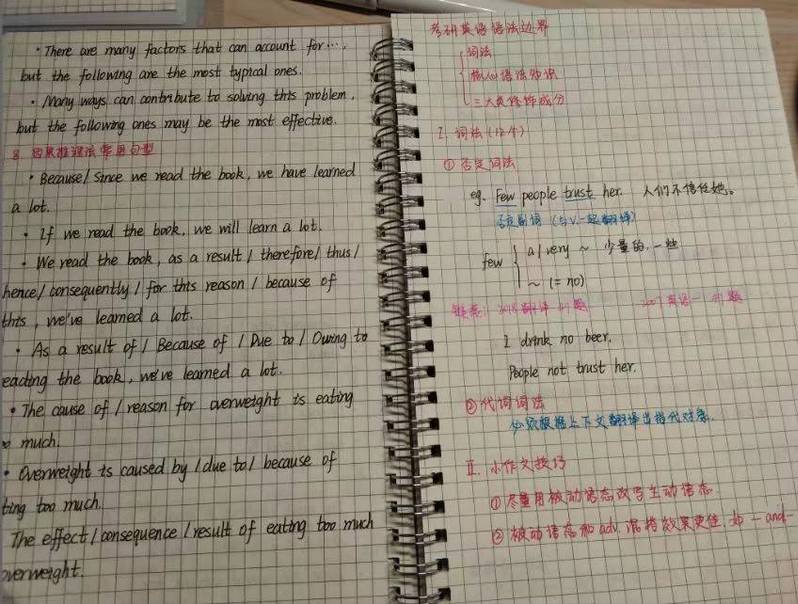 · There are many factors that can account for...,
but the following are the most typical ones.
· Many ways can contribute to solving this problem,
but the following ones may be the most effective.
8. 因果推理法常用句型
· Because/ Since we read the book, we have learned
a lot.
· If we read the book, we will learn a lot.
· We read the book, as a result / therefore/ thus/
hence/ consequently / for this reason / because of
this, we've learned a lot.
· As a result of / Because of / Due to / Owing to
eading the book, we've learned a lot.
· The cause of / reason for overweight is eating
much.
· Overweight is caused by / due to / because of
ting too much.
The effect / consequence / result of eating too much
overweight.
考研英语语法边界
词法
核心语法知识
三大类修饰成分
I. 词法 (12个)
① 否定词法
eg. Few people trust her. 人们不信任她。
否定副词 (与v.一起翻译)
few { a / very ~ 少量的, 一些
~ (= no)
I drink no beer.
People not trust her.
② 代词词法
必须根据上下文翻译出指代对象.
II. 小作文技巧
① 尽量用被动语态改写主动语态.
② 被动语态和 adv. 混搭效果更佳 如 - and -